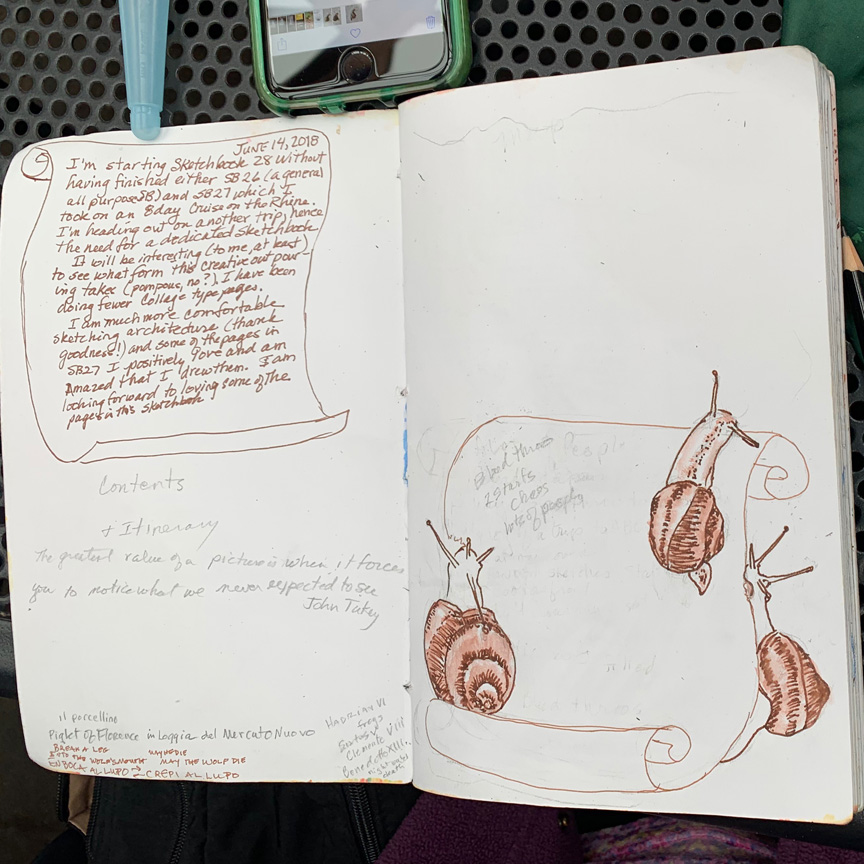 JUNE 14, 2018
I'm starting Sketchbook 28 without
having finished either SB26 (a general
all purpose SB) and SB27 which I
took on an 8day Cruise on the Rhine.
I'm heading out on another trip, hence
the need for a dedicated sketchbook
It will be interesting (to me, at least)
to see what form this creative outpour-
ing takes (pompous, no?). I have been
doing fewer collage type pages.
I am much more comfortable
sketching architecture (thank
goodness!) and some of the pages in
SB27 I positively love and am
Amazed that I drew them. I am
looking forward to loving some of the
pages in this sketchbook
Contents
+ Itinerary
The greatest value of a picture is when it forces
you to notice what we never expected to see
John Tukey
il porcellino
Piglet of Florence in Loggia del Mercato Nuovo
BREAK A LEG
INTO THE WOLF'S MOUTH MAY HE DIE
MAY THE WOLF DIE
EN BOCA AL LUPO → CREPI AL LUPO
HADRIAN VI
Clemente VIII
Benedetto XIII
death
chess
lots of people
People